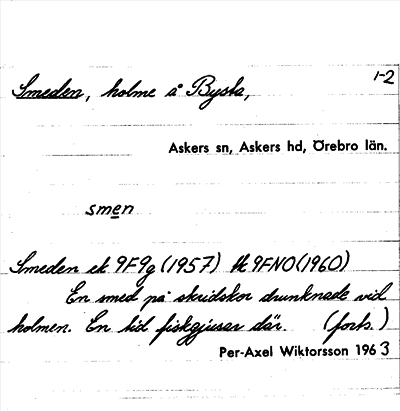 1-2
Smeden, holme å Bysta,
Askers sn, Askers hd, Örebro län.
smen
Smeden ek 9F9g (1957) tk 9FNO (1960)
En smed på skridskor drunknade vid
holmen. En tid fiskgjusar där. (forts.)
Per-Axel Wiktorsson 1963